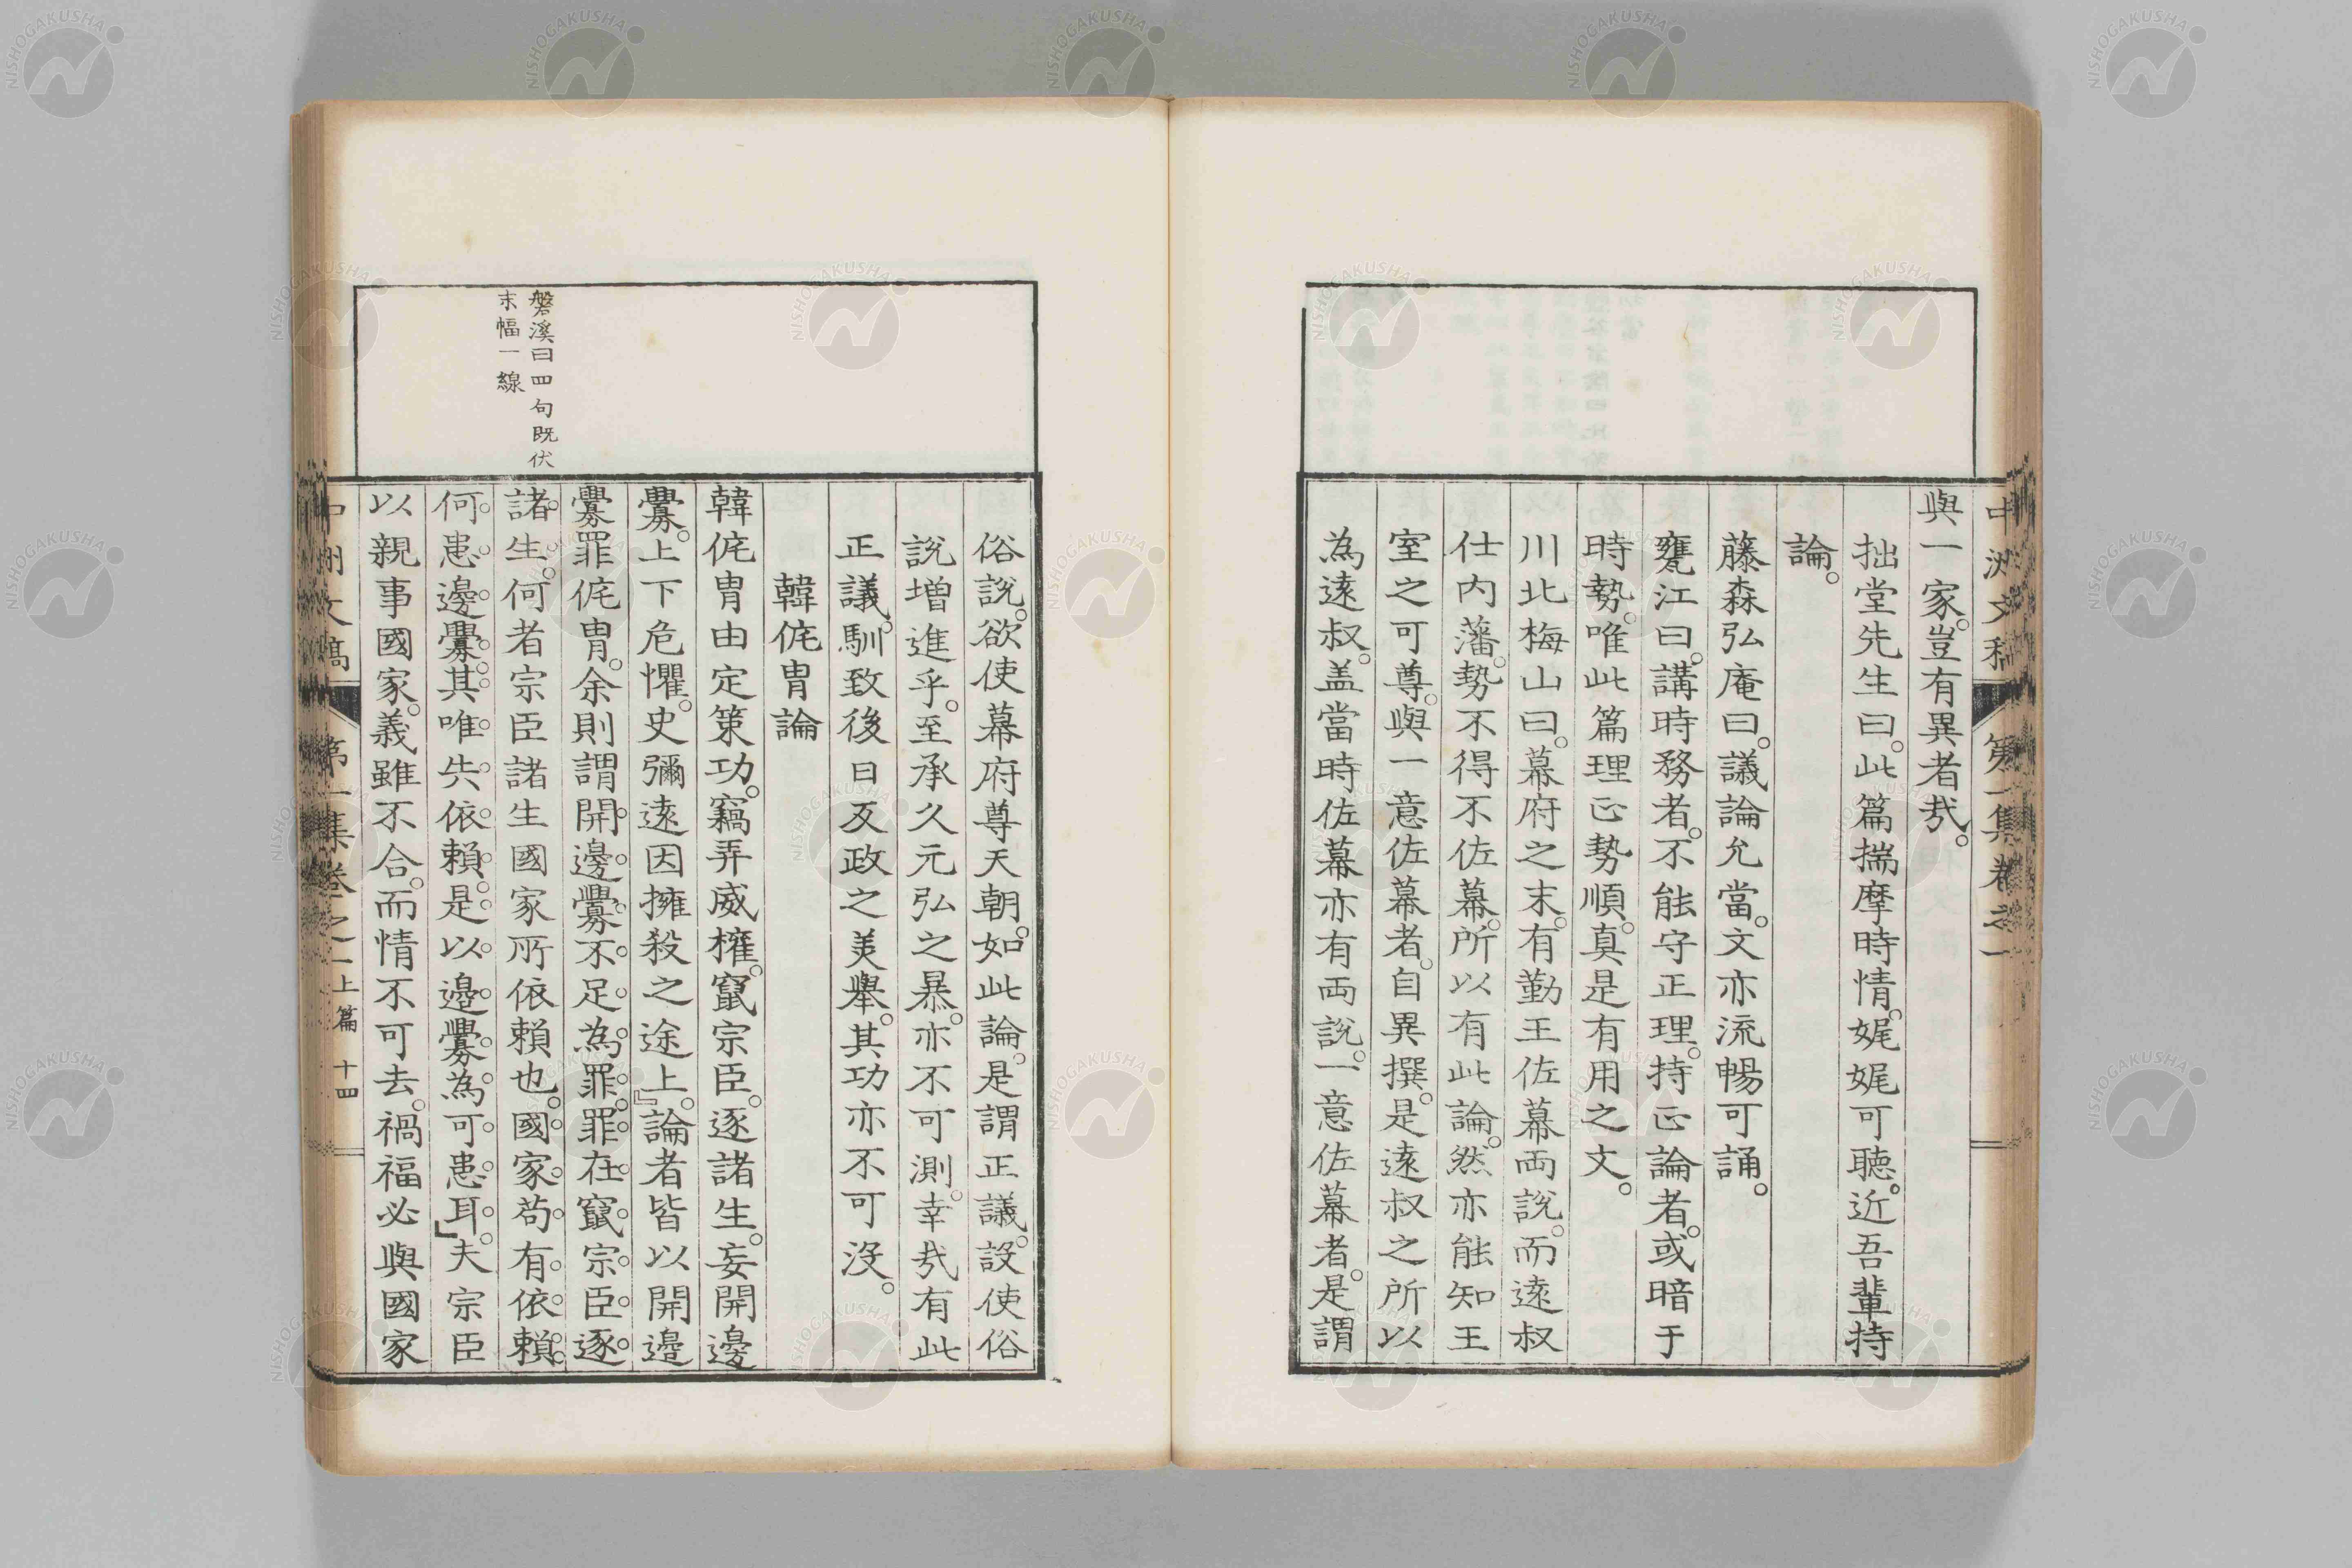 中洲文稿 第一集卷之一
與一家。豈有異者哉。
拙堂先生曰。此篇揣摩時情。娓娓可聽。近吾輩持
論。
藤森弘庵曰。議論允當。文亦流暢可誦。
甕江曰。講時務者。不能守正理。持正論者。或暗于
時勢。唯此篇理正勢順。真是有用之文。
川北梅山曰。幕府之末。有勤王佐幕両說。而遠叔
仕內藩。勢不得不佐幕。所以有此論。然亦能知王
室之可尊。與一意佐幕者。自異撰。是遠叔之所以
為遠叔。盖當時佐幕亦有両說。一意佐幕者。是謂
俗說。欲使幕府尊天朝。如此論。是謂正議。設使俗
說增進乎。至承久元弘之暴。亦不可測。幸哉有此
正議。馴致後日反政之美舉。其功亦不可沒。
韓侂胄論
韓侂胄由定策功。竊弄威權。竄宗臣。逐諸生。妄開邊
釁。上下危懼。史彌遠因擁殺之途上。』論者皆以開邊
釁罪侂胄。余則謂開邊釁不足為罪。罪在竄宗臣逐
諸生。何者宗臣諸生國家所依賴也。國家苟有依賴。
何患邊釁。其唯失依賴。是以邊釁為可患耳。』夫宗臣
以親事國家。義雖不合。而情不可去。禍福必與國家
磐溪曰四句既伏
末幅一線
中洲文稿 第一集卷之一 上篇 十四